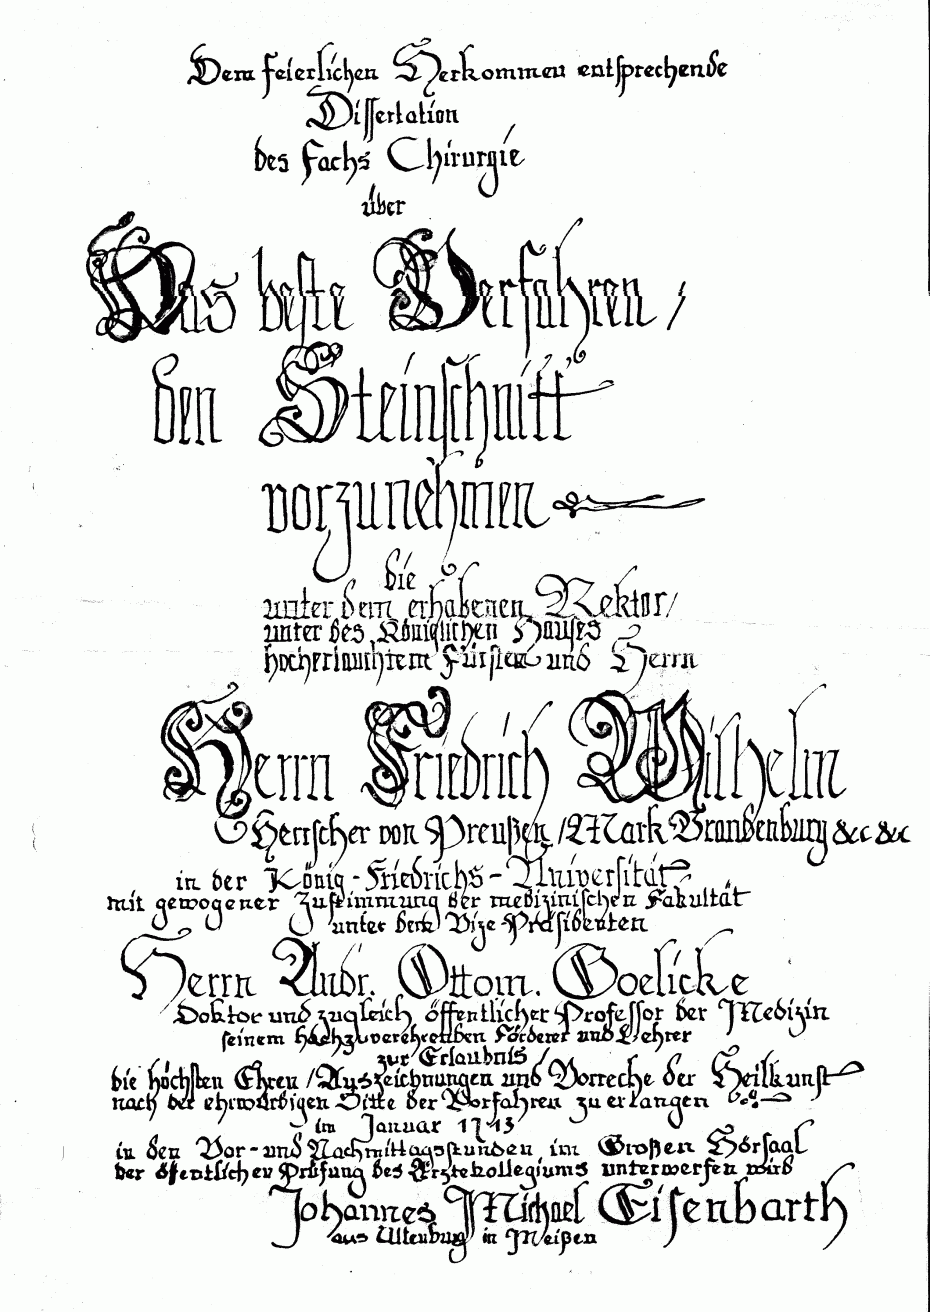 Dem feierlichen Herkommen entsprechende
Dissertation
des Fachs Chirurgie
über
Das beste Verfahren /
den Steinschnitt
vorzunehmen
die
unter dem erhabenen Rektor /
unter des Königlichen Hauses
hocherlauchtem Fürsten und Herrn
Herrn Friedrich Wilhelm
Herrscher von Preußen / Mark Brandenburg &c &c
in der König-Friedrichs-Universität
mit gewogener Zustimmung der medizinischen Fakultät
unter dem Vize-Präsidenten
Herrn Andr. Ottom. Goelicke
Doktor und zugleich öffentlicher Professor der Medizin
seinem hochzuverehrenden Förderer und Lehrer
zur Erlaubnis /
die höchsten Ehren / Auszeichnungen und Vorreche der Heilkunst
nach der ehrwürdigen Sitte der Vorfahren zu erlangen
im Januar 1713
in den Vor- und Nachmittagsstunden im Großen Hörsaal
der öffentlicher Prüfung des Ärztekollegiums unterworfen wird
Johannes Michael Eisenbarth
aus Altenburg in Meißen